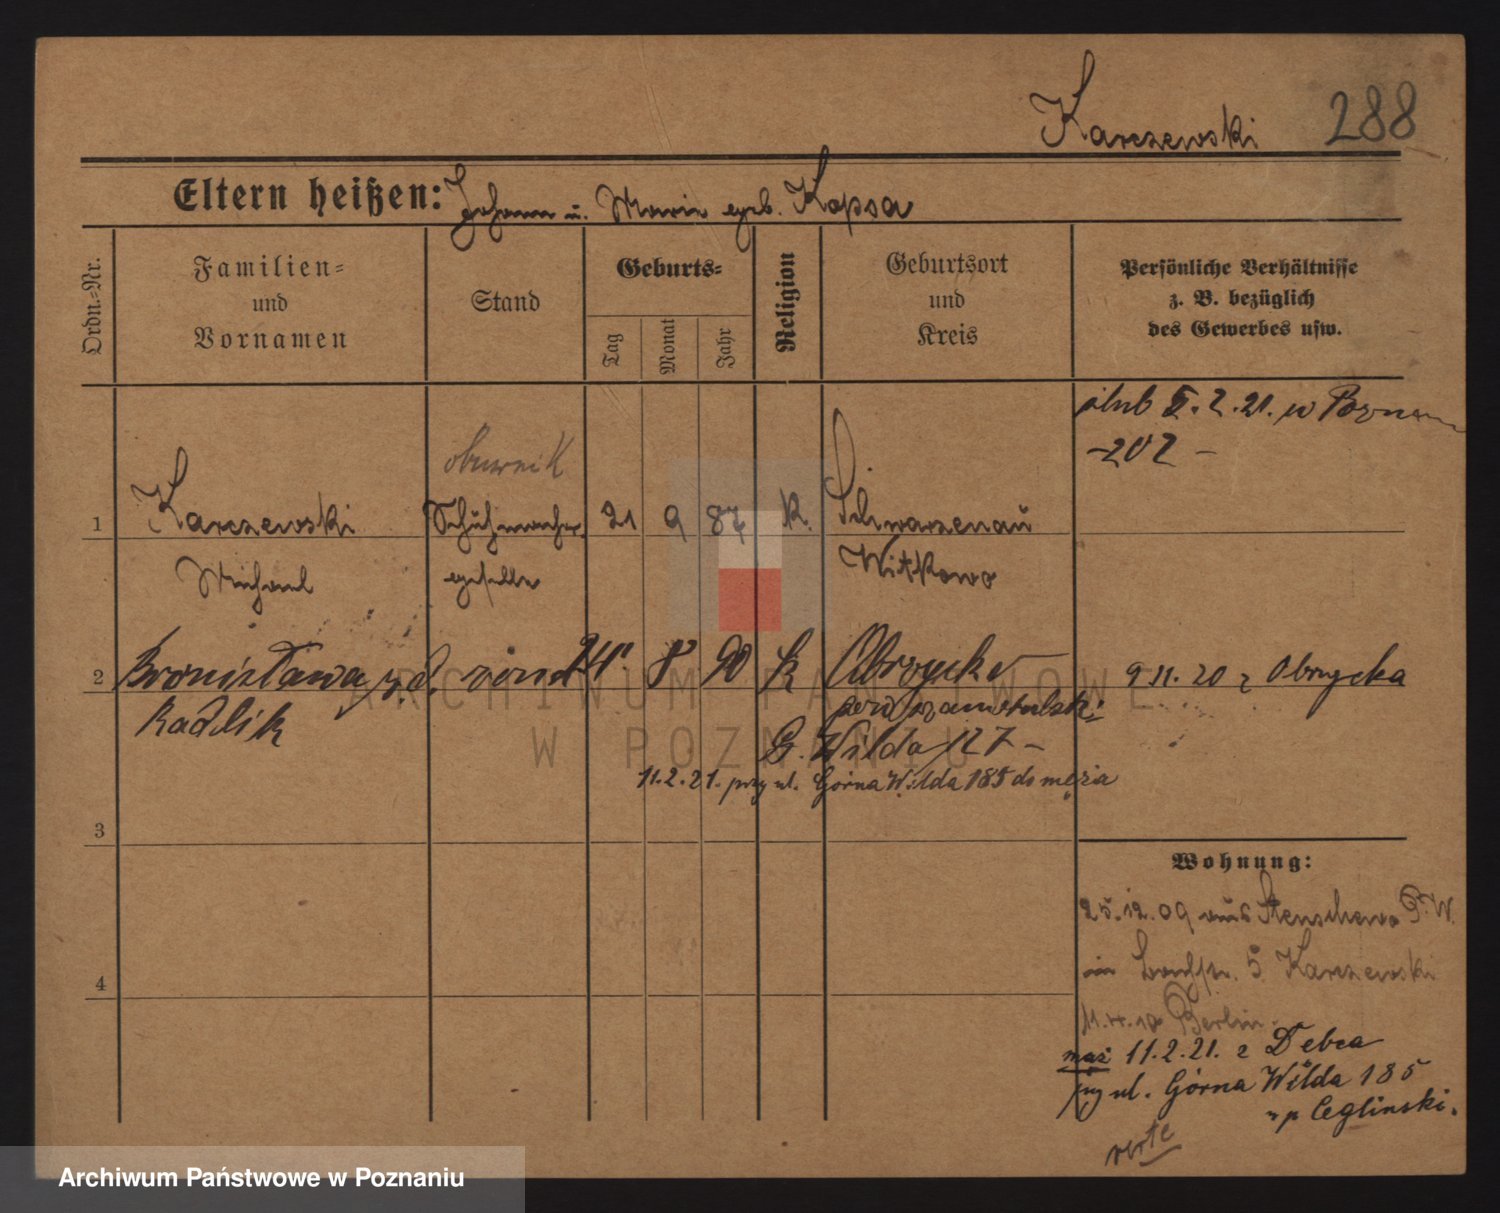 Karczewski 288
Eltern heißen: Johann u. Marie geb. Kapsa
Ordn.-Nr.
Familien-
und
Vornamen
Stand
Geburts-
Tag
Monat
Jahr
Religion
Geburtsort
und
Kreis
Persönliche Verhältnisse
z. B. bezüglich
des Gewerbes usw.
ślub 5. 2. 21. w Poznan
-202-
obuwnik
1 Karczewski Schuhmacher 21 9 87 K. Schwarzenau
Michael geselle Witkowo
2 Bronisława 24. 8 90 K Obrzycko 9 11. 20 z Obrzycka
Radlik pow. szamotulski
G. Wilda 127-
11.2.21. przy ul. Górna Wilda 185 do męża
3
Wohnung:
25.12.09 aus Stenschewo P.W.
in 5 Karczewski
4
11.4.10 Berlin.
mąż 11.2.21. z Dębca
przy ul. Górna Wilda 185
u p Ceglinski.
verte
ARCHIWUM PAŃSTWOWE
W POZNANIU
Archiwum Państwowe w Poznaniu